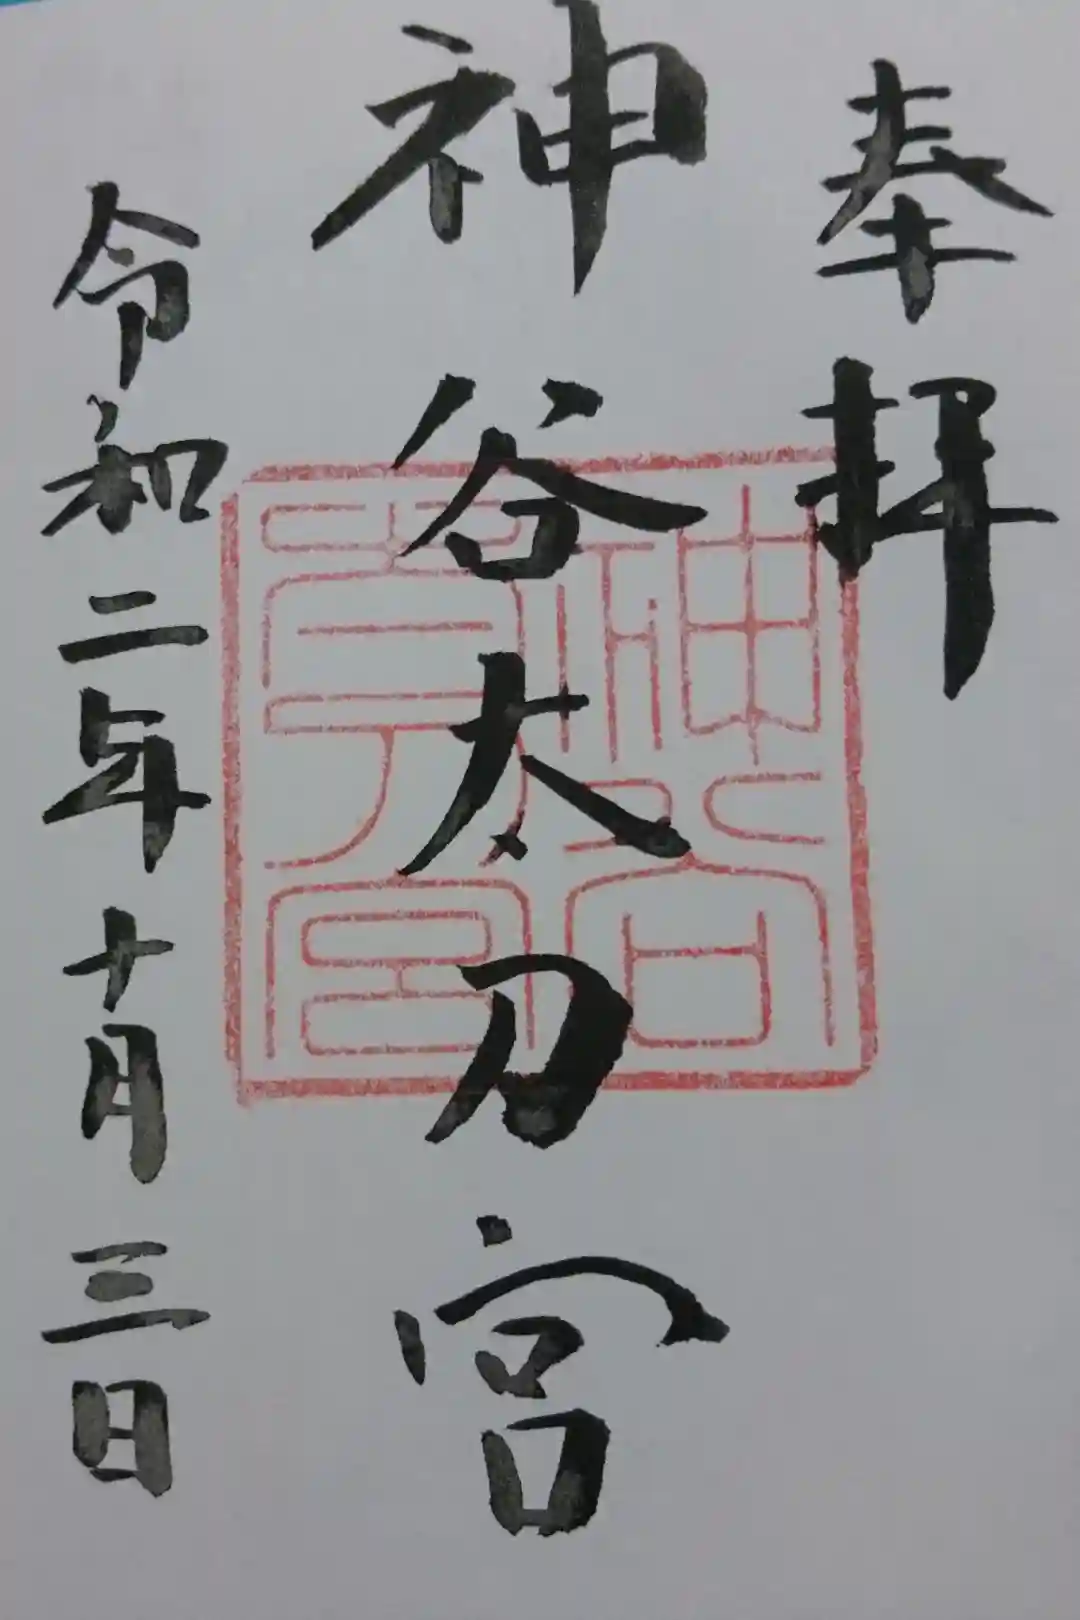 奉拝
神谷太刀宮
令和二年十月三日
神谷太刀宮